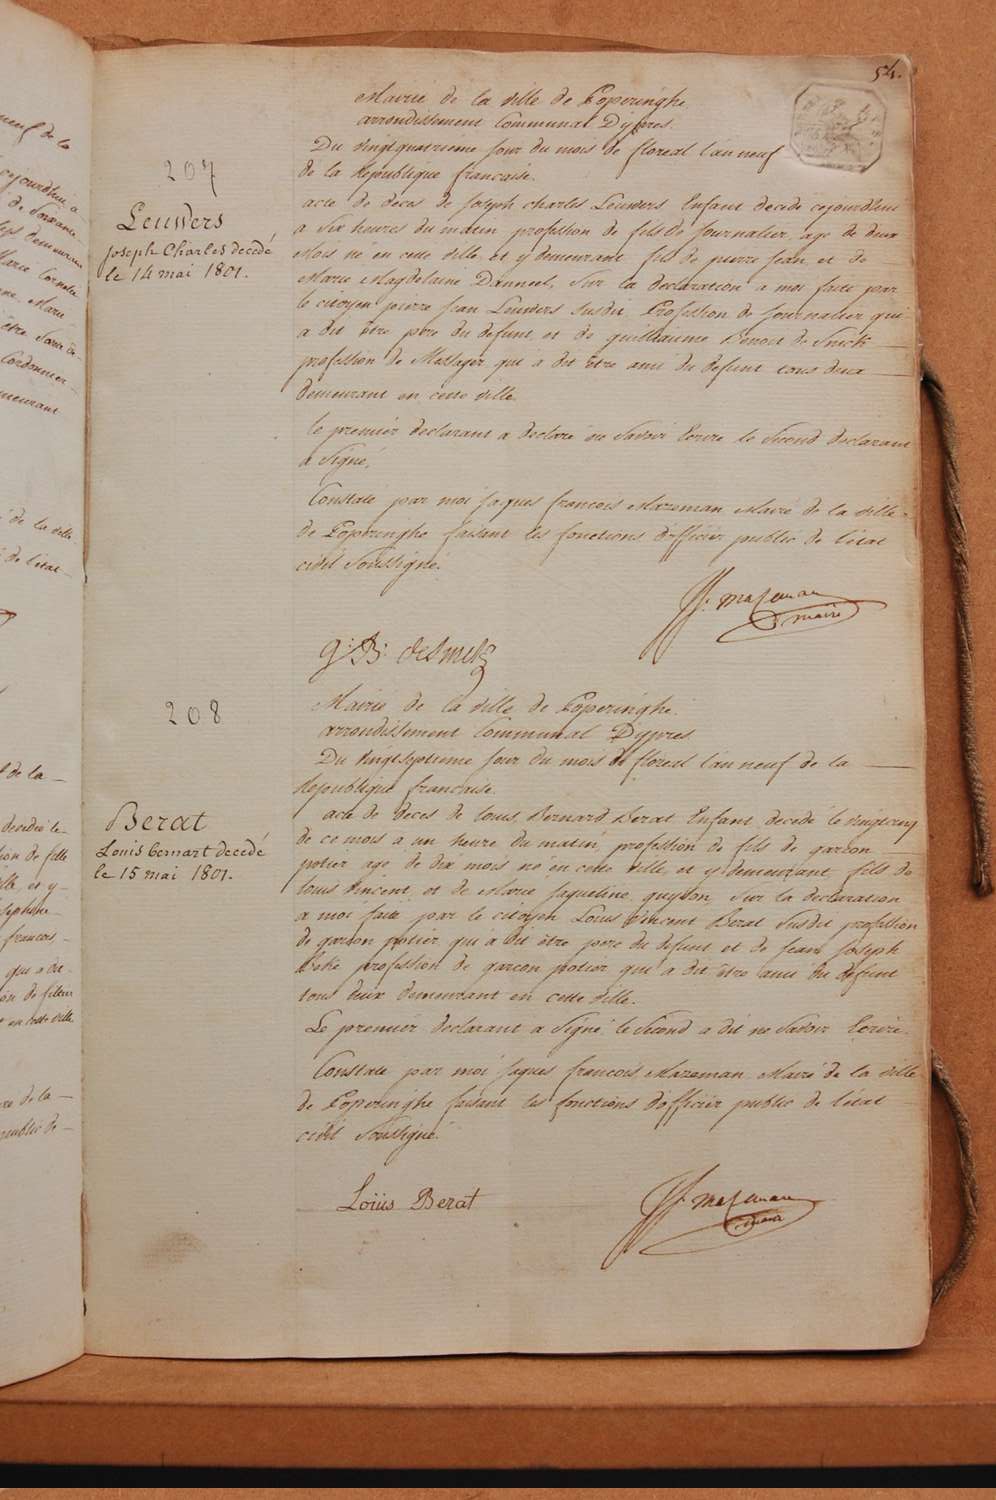 54.
Mairie de la ville de Poperinghe
arrondissement Communal Dÿpres.
Du vingtquatrieme jour du mois de floreal l'an neuf
de la Republique francaise.
207
Leuwers
joseph Charles decedé
le 14 mai 1801.
acte de deces de Joseph charles Leuwers Enfant decedé cejourdhui
a six heures du matin profession de fils de Journalier, age de deux
Mois né en cette ville et y demeurant fils de pierre jean et de
Marie Magdelaine Danneel, sur la declaration a moi faite par
le citoyen pierre jean Leuwers susdit, Profession de journalier qui
a dit être pere du defunt, et de guilliaume Benoit de Smet
profession de Messager qui a dit être ami du defunt tous deux
demeurant en cette ville.
le premier declarant a declaré ne savoir Ecrire le second declarant
a signé,
Constaté par moi jaques francois Mazeman Maire de la ville
de Poperinghe faisant les fonctions d'officier public de l'etat
civil soussigné.
J. mazeman
maire
g: B: desmet
208
Mairie de la ville de Poperinghe.
arrondissement Communal Dÿpres
Du vingtseptieme jour du mois de floreal l'an neuf de la
Republique francaise.
Berat
Louis Bernart decedé
le 15 mai 1801.
acte de deces de louis Bernard Berat Enfant decedé le vingtcinq
de ce mois a un heure du matin, profession de fils de garcon
potier age de dix mois né en cette ville, et y demeurant, fils de
louis vincent, et de Marie jaqueline guyson, sur la declaration
a moi faite par le citoyen Louis vincent Berat susdit profession
de garcon potier, qui a dit être pere du defunt et de jean joseph
profession de garcon potier qui a dit être ami du defunt
tous deux demeurant en cette ville.
Le premier declarant a signé le second a dit ne savoir Ecrire.
Constaté par moi jaques francois Mazeman Maire de la ville
de Poperinghe faisant les fonctions d'officier public de l'etat
civil soussigné.
Loüis Berat
J. mazeman
maire